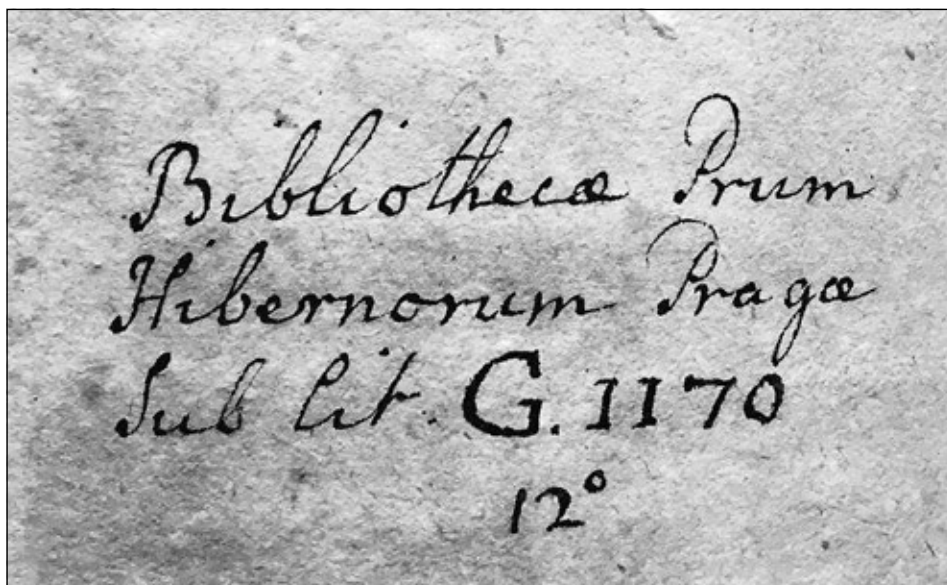 Bibliothecæ Prum
Hibernorum Pragæ
Sub lit. G. 1170
12°